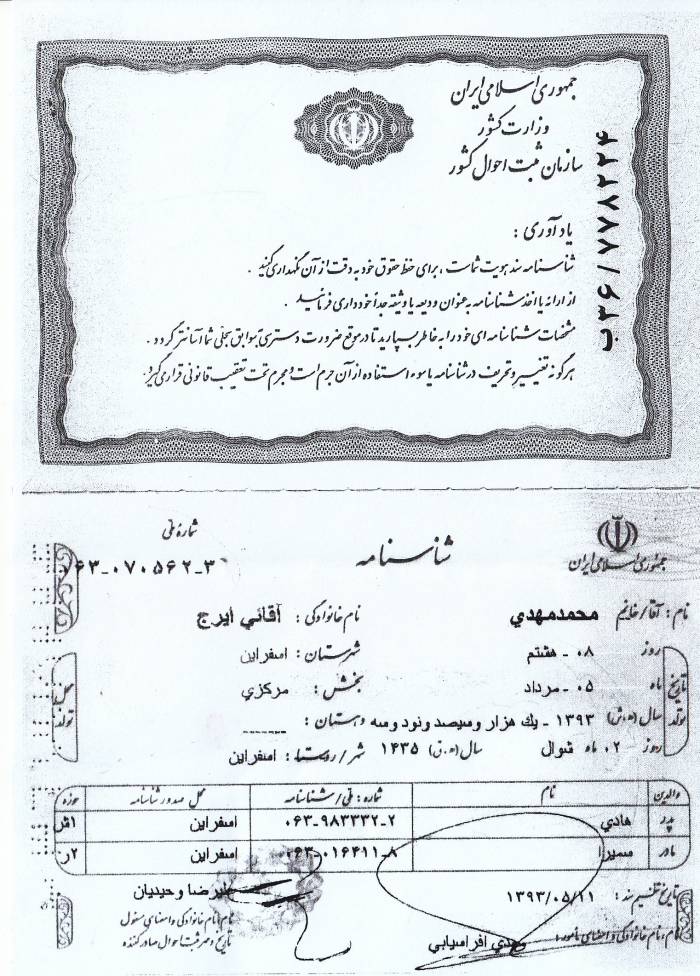 جمهوری اسلامی ایران
وزارت کشور
سازمان ثبت احوال کشور
ب۳۶/۷۷۸۲۲۴
یادآوری :
شناسنامه سند هویت شماست ، برای حفظ حقوق خود به دقت از آن نگهداری کنید .
از ارائه یا اخذ شناسنامه به عنوان ودیعه یا وثیقه جداً خودداری فرمائید .
مشخصات شناسنامه ای خود را به خاطر بسپارید تا در موقع ضرورت دسترسی به سوابق سجلی شما آسانتر گردد .
هرگونه تغییر و تحریف در شناسنامه یا سوء استفاده از آن جرم است و مجرم تحت تعقیب قانونی قرار می گیرد.
جمهوری اسلامی ایران
شناسنامه
شماره ملی
۰۶۳-۰۷۰۵۶۲-۳
نام : آقا/خانم محمدمهدي نام خانوادگی : آقائي ايرج
تاریخ تولد
روز ۰۸ - هشتم شهرستان : اسفراين
ماه ۰۵ - مرداد بخش : مركزي
سال (ه.ش) ۱۳۹۳ - يك هزار و سيصد و نود و سه دهستان : ------
روز ۰۲ ماه شوال سال (ه.ق) ۱۴۳۵ شهر/روستا : اسفراين
محل تولد
والدین نام شماره : ملی/شناسنامه محل صدور شناسنامه حوزه
پدر هادي ۰۶۳-۹۸۳۳۳۲-۲ اسفراين ۱ش
مادر سميرا ۰۶۳-۰۱۶۴۱۱-۸ اسفراين ۲ر
تاریخ تنظیم سند : ۱۳۹۳/۰۵/۱۱ عليرضا وحيديان
نام، نام خانوادگی و امضای مسئول
نام، نام خانوادگی و امضای مأمور : مهدي افراسيابي تاریخ و مهر ثبت احوال صادرکننده